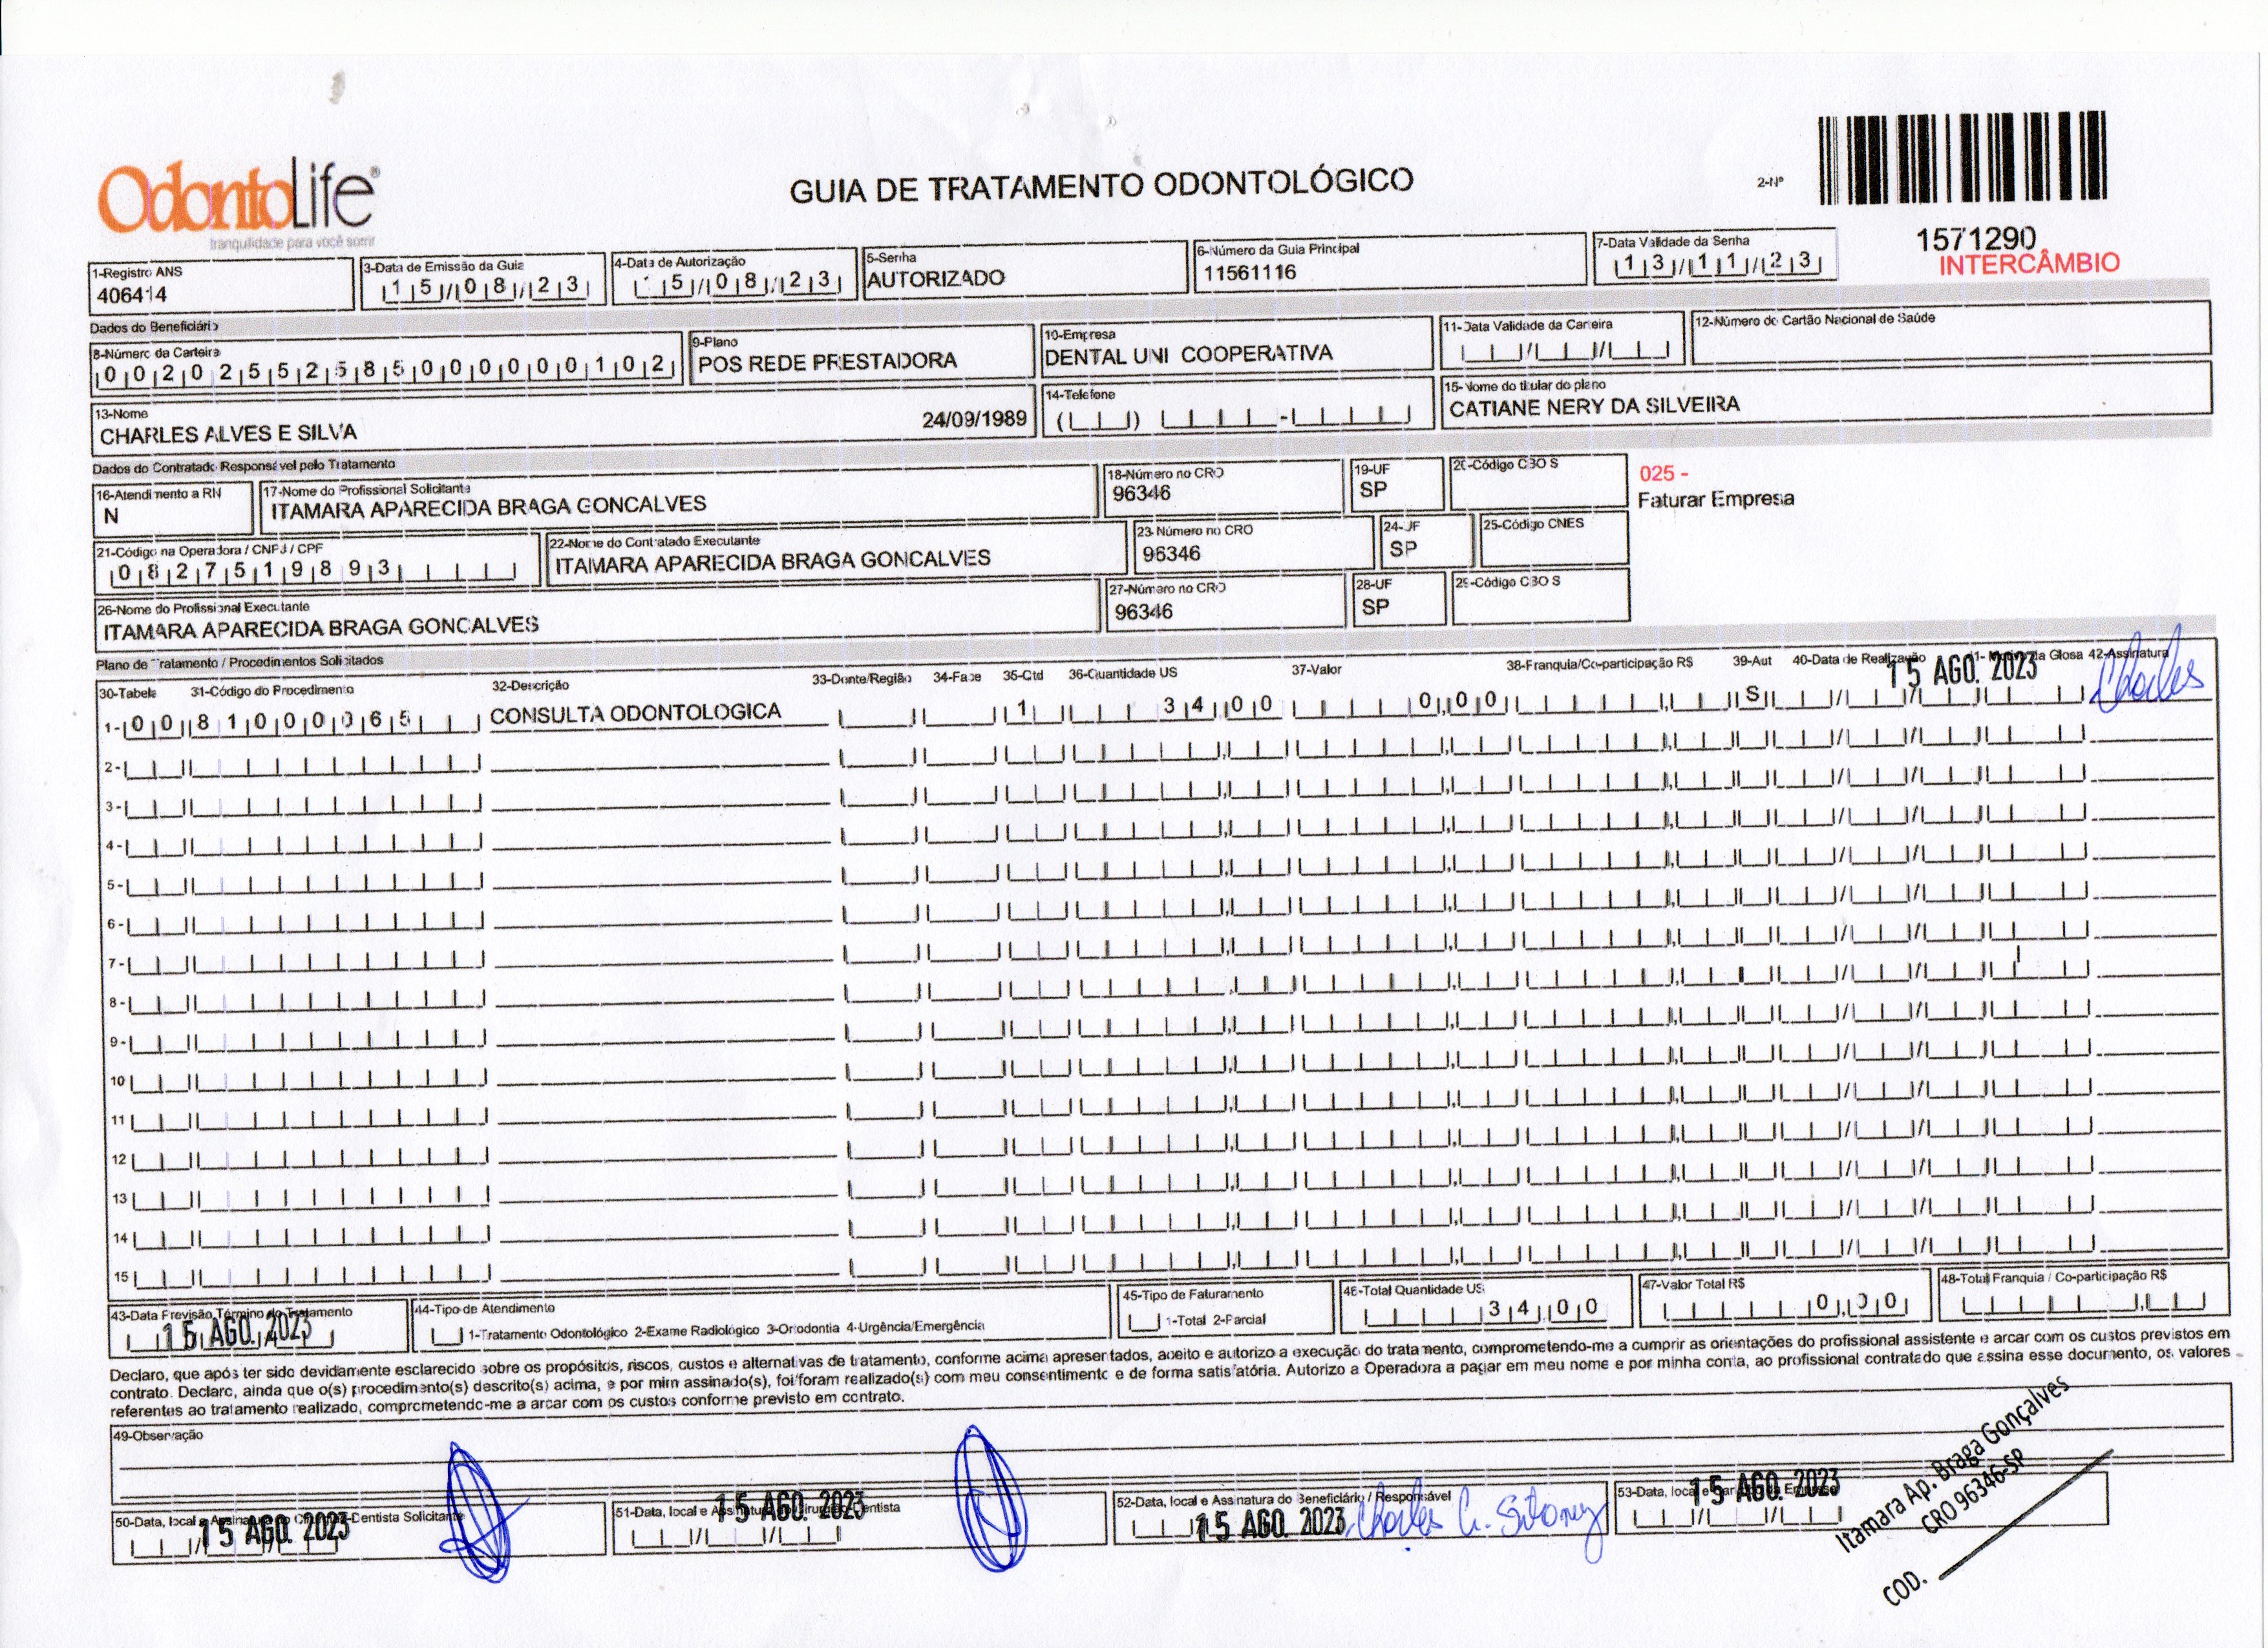 OdontoLife®
tranquilidade para você sorrir
GUIA DE TRATAMENTO ODONTOLÓGICO
2-Nº
1571290
INTERCÂMBIO
1-Registro ANS
406414
3-Data de Emissão da Guia
15/08/23
4-Data de Autorização
15/08/23
5-Senha
AUTORIZADO
6-Número da Guia Principal
11561116
7-Data Validade da Senha
13/11/23
Dados do Beneficiário
8-Número da Carteira
00202552585000000102
9-Plano
POS REDE PRESTADORA
10-Empresa
DENTAL UNI COOPERATIVA
11-Data Validade da Carteira
12-Número do Cartão Nacional de Saúde
13-Nome
CHARLES ALVES E SILVA 24/09/1989
14-Telefone
15-Nome do titular do plano
CATIANE NERY DA SILVEIRA
Dados do Contratado Responsável pelo Tratamento
16-Atendimento a RN
N
17-Nome do Profissional Solicitante
ITAMARA APARECIDA BRAGA GONCALVES
18-Número no CRO
96346
19-UF
SP
20-Código CBO S
025 -
Faturar Empresa
21-Código na Operadora / CNPJ / CPF
0827519893
22-Nome do Contratado Executante
ITAMARA APARECIDA BRAGA GONCALVES
23-Número no CRO
96346
24-UF
SP
25-Código CNES
26-Nome do Profissional Executante
ITAMARA APARECIDA BRAGA GONCALVES
27-Número no CRO
96346
28-UF
SP
29-Código CBO S
Plano de Tratamento / Procedimentos Solicitados
30-Tabela 31-Código do Procedimento 32-Descrição 33-Dente/Região 34-Face 35-Qtd 36-Quantidade US 37-Valor 38-Franquia/Co-participação R$ 39-Aut 40-Data de Realização 41-Motivo da Glosa 42-Assinatura
1- 00 81000065 CONSULTA ODONTOLOGICA 1 34,00 0,00 S 15 AGO. 2023 Charles
2-
3-
4-
5-
6-
7-
8-
9-
10
11
12
13
14
15
43-Data Previsão Término do Tratamento
15 AGO. 2023
44-Tipo de Atendimento
1-Tratamento Odontológico 2-Exame Radiológico 3-Ortodontia 4-Urgência/Emergência
45-Tipo de Faturamento
1-Total 2-Parcial
46-Total Quantidade US
34,00
47-Valor Total R$
0,00
48-Total Franquia / Co-participação R$
Declaro, que após ter sido devidamente esclarecido sobre os propósitos, riscos, custos e alternativas de tratamento, conforme acima apresentados, aceito e autorizo a execução do tratamento, comprometendo-me a cumprir as orientações do profissional assistente e arcar com os custos previstos em
contrato. Declaro, ainda que o(s) procedimento(s) descrito(s) acima, e por mim assinado(s), foi/foram realizado(s) com meu consentimento e de forma satisfatória. Autorizo a Operadora a pagar em meu nome e por minha conta, ao profissional contratado que assina esse documento, os valores
referentes ao tratamento realizado, comprometendo-me a arcar com os custos conforme previsto em contrato.
49-Observação
50-Data, local e Assinatura do Cirurgião-Dentista Solicitante
15 AGO. 2023
51-Data, local e Assinatura do Cirurgião-Dentista
15 AGO. 2023
52-Data, local e Assinatura do Beneficiário / Responsável
15 AGO. 2023 Charles
53-Data, local e Carimbo da Empresa
15 AGO. 2023
Itamara Ap. Braga Gonçalves
CRO 96346-SP
COD.